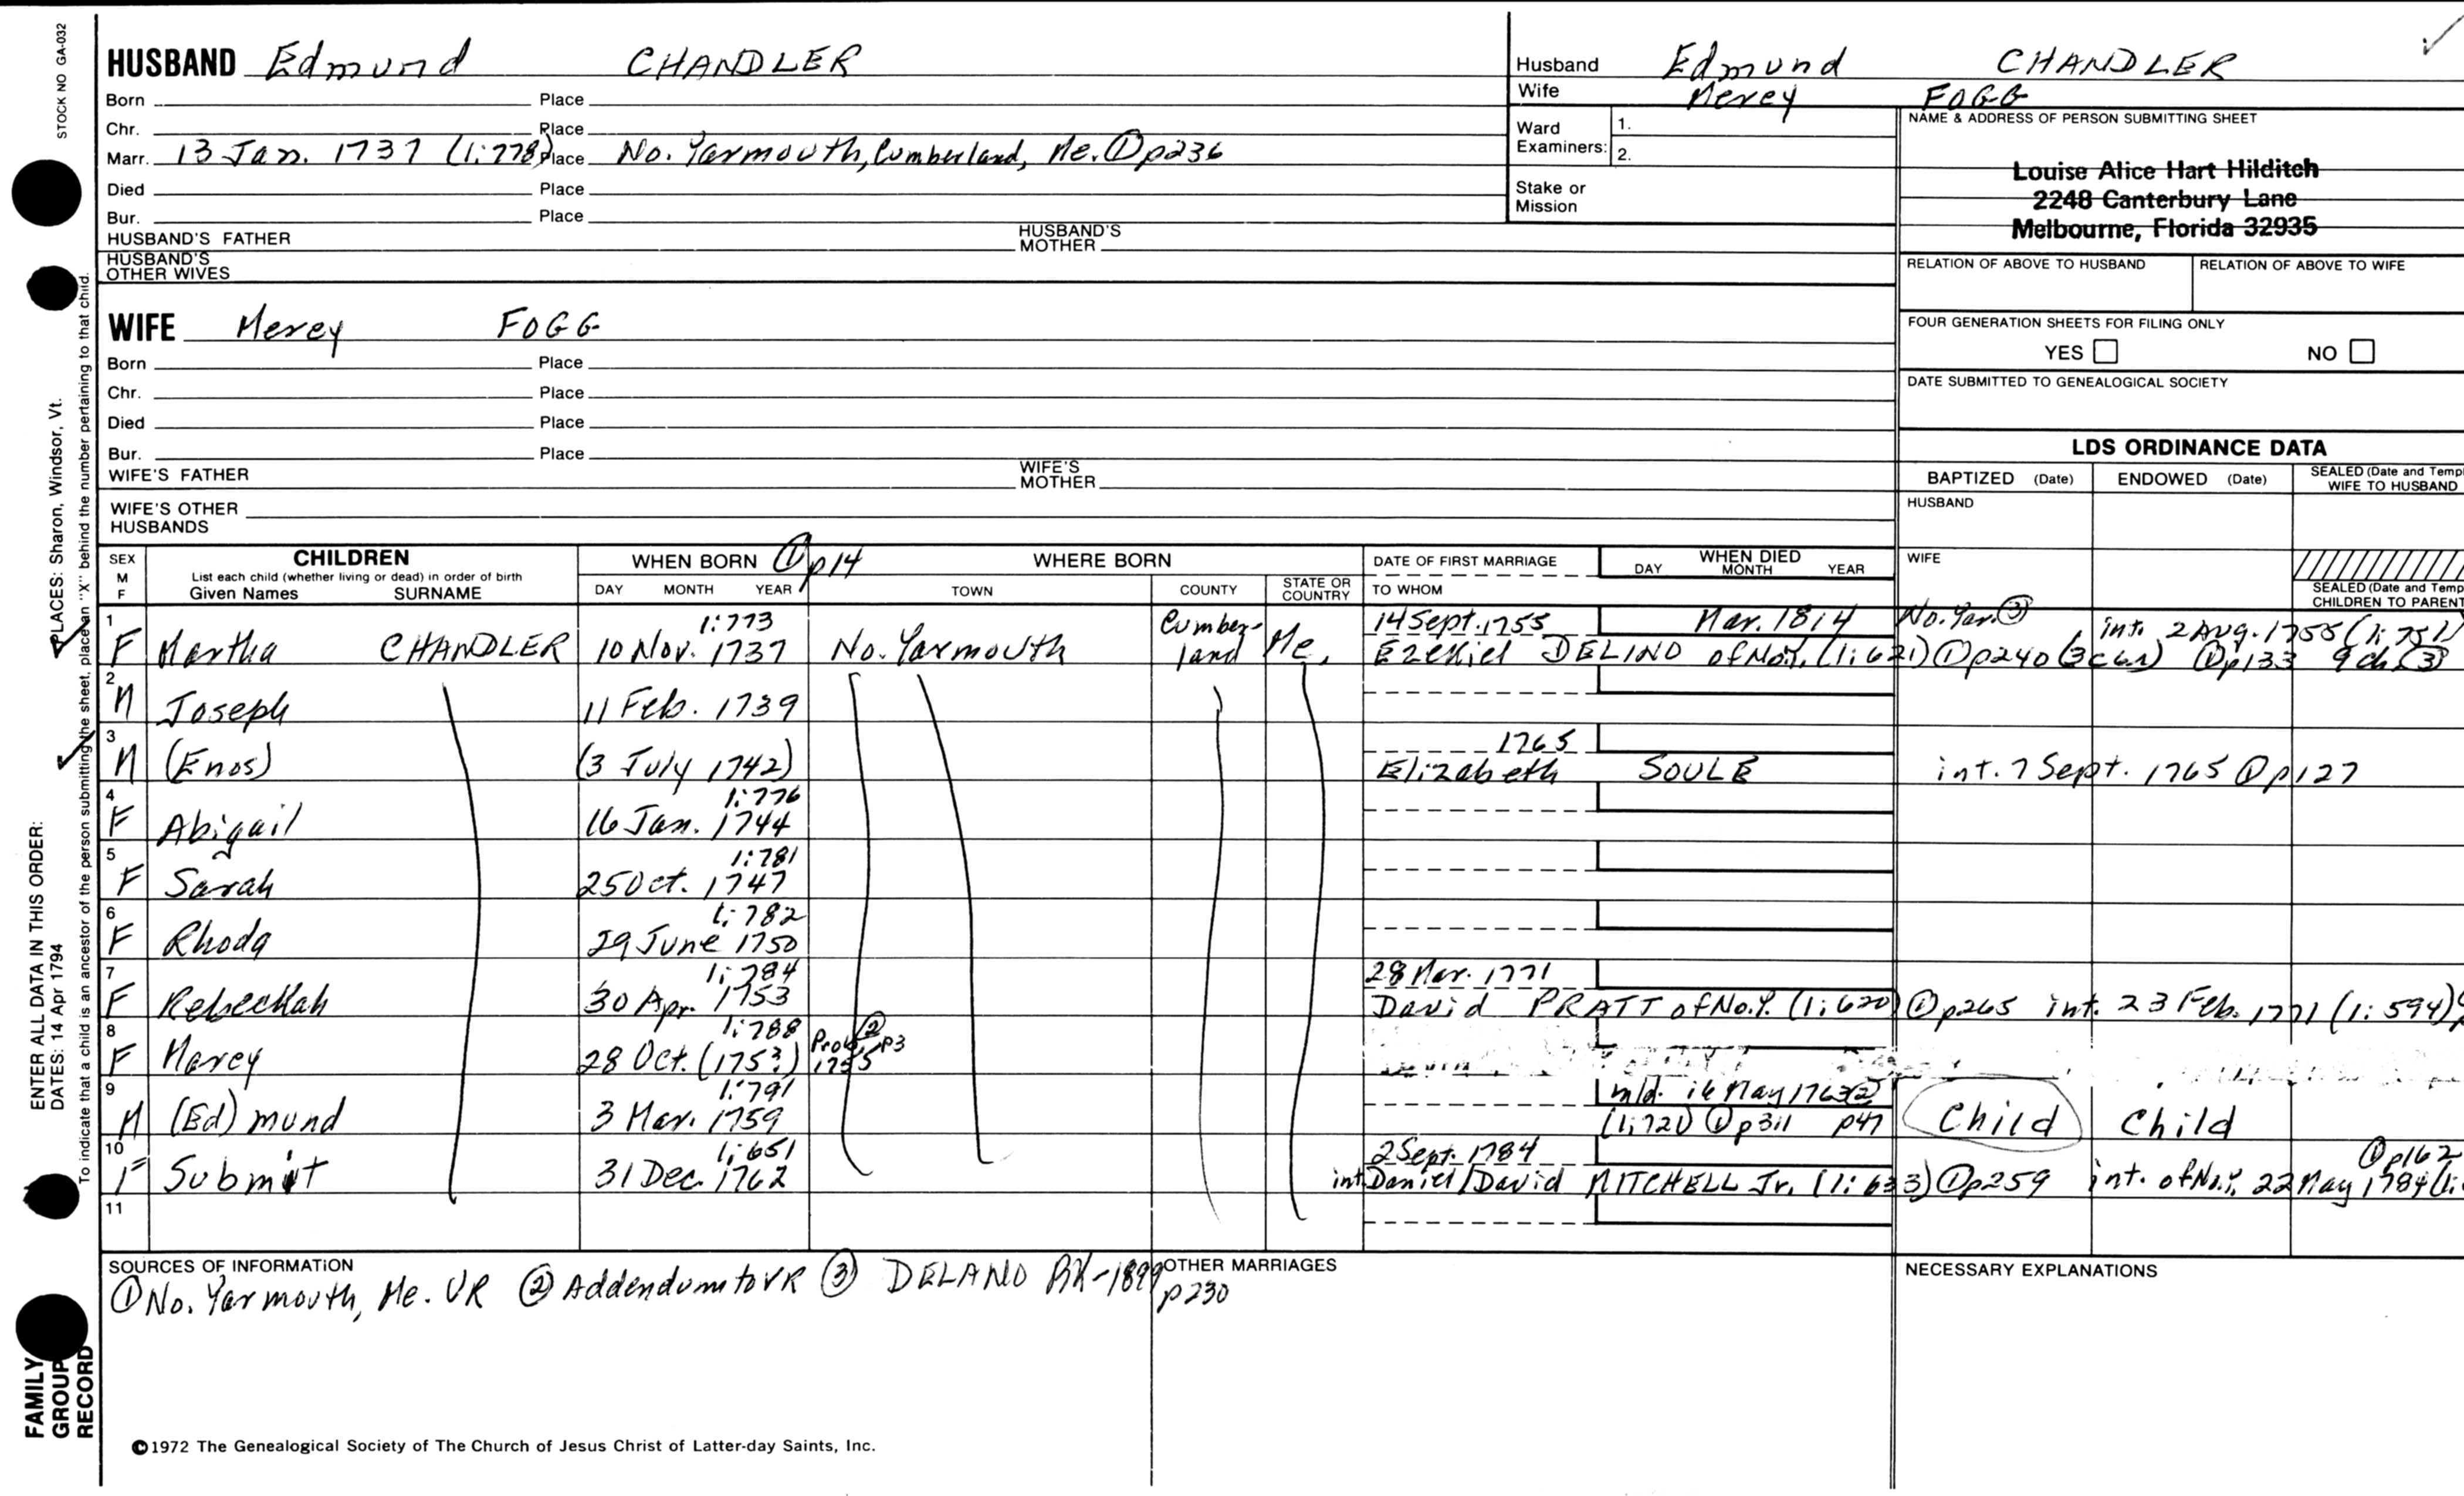 STOCK NO GA-032
HUSBAND Edmund CHANDLER
Born Place
Chr. Place
Marr. 13 Jan. 1737 (1:778) Place No. Yarmouth, Cumberland, Me. ① p236
Died Place
Bur. Place
HUSBAND'S FATHER HUSBAND'S MOTHER
HUSBAND'S OTHER WIVES
Husband Edmund CHANDLER
Wife Mercy FOGG
Ward Examiners: 1.
2.
Stake or Mission
NAME & ADDRESS OF PERSON SUBMITTING SHEET
Louise Alice Hart Hilditch
2248 Canterbury Lane
Melbourne, Florida 32935
RELATION OF ABOVE TO HUSBAND RELATION OF ABOVE TO WIFE
FOUR GENERATION SHEETS FOR FILING ONLY
YES NO
DATE SUBMITTED TO GENEALOGICAL SOCIETY
WIFE Mercy FOGG
Born Place
Chr. Place
Died Place
Bur. Place
WIFE'S FATHER WIFE'S MOTHER
WIFE'S OTHER HUSBANDS
LDS ORDINANCE DATA
BAPTIZED (Date) ENDOWED (Date) SEALED (Date and Temp
WIFE TO HUSBAND
HUSBAND
WIFE
SEALED (Date and Temp
CHILDREN TO PARENT
SEX M F
CHILDREN
List each child (whether living or dead) in order of birth
Given Names SURNAME
WHEN BORN ① p14
DAY MONTH YEAR
WHERE BORN
TOWN COUNTY STATE OR COUNTRY
DATE OF FIRST MARRIAGE
TO WHOM
WHEN DIED
DAY MONTH YEAR
1 1:773 Cumber- 14 Sept. 1755 Mar. 1814 No. Yar. ③ int. 2 Aug. 1755 (1:751)
F Martha CHANDLER 10 Nov. 1737 No. Yarmouth land Me. Ezekiel DELINO of No.Y. (1:621) ① p240 ① p133 9 ch. ③
2
M Joseph 11 Feb. 1739
3 1765
M (Enos) (3 July 1742) Elizabeth SOULE int. 7 Sept. 1765 ① p127
4 1:776
F Abigail 16 Jan. 1744
5 1:781
F Sarah 25 Oct. 1747
6 1:782
F Rhoda 29 June 1750
7 1:784 28 Mar. 1771
F Rebeckah 30 Apr. 1753 David PRATT of No.Y. (1:620) ① p265 int. 23 Feb. 1771 (1:594)
8 1:788 Prob. ② p3
F Mercy 28 Oct. (1753?) 1755
9 1:791 16 May 1763 ②
M (Ed)mund 3 Mar. 1759 (1:721) ① p311 p47 Child Child
10 1:651 2 Sept. 1784 ① p162
F Submit 31 Dec. 1762 int. Daniel/David MITCHELL Jr. (1:633) ① p259 int. of No.Y. 22 May 1784 (1:
11
SOURCES OF INFORMATION
① No. Yarmouth, Me. VR ② Addendum to VR ③ DELANO BK-1899 p230
OTHER MARRIAGES
NECESSARY EXPLANATIONS
©1972 The Genealogical Society of The Church of Jesus Christ of Latter-day Saints, Inc.
ENTER ALL DATA IN THIS ORDER:
DATES: 14 Apr 1794
PLACES: Sharon, Windsor, Vt.
To indicate that a child is an ancestor of the person submitting the sheet, place an "X" behind the number pertaining to that child.
FAMILY
GROUP
RECORD